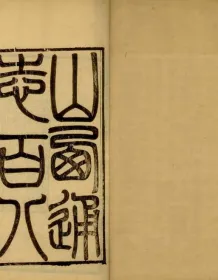 山西通
志百八